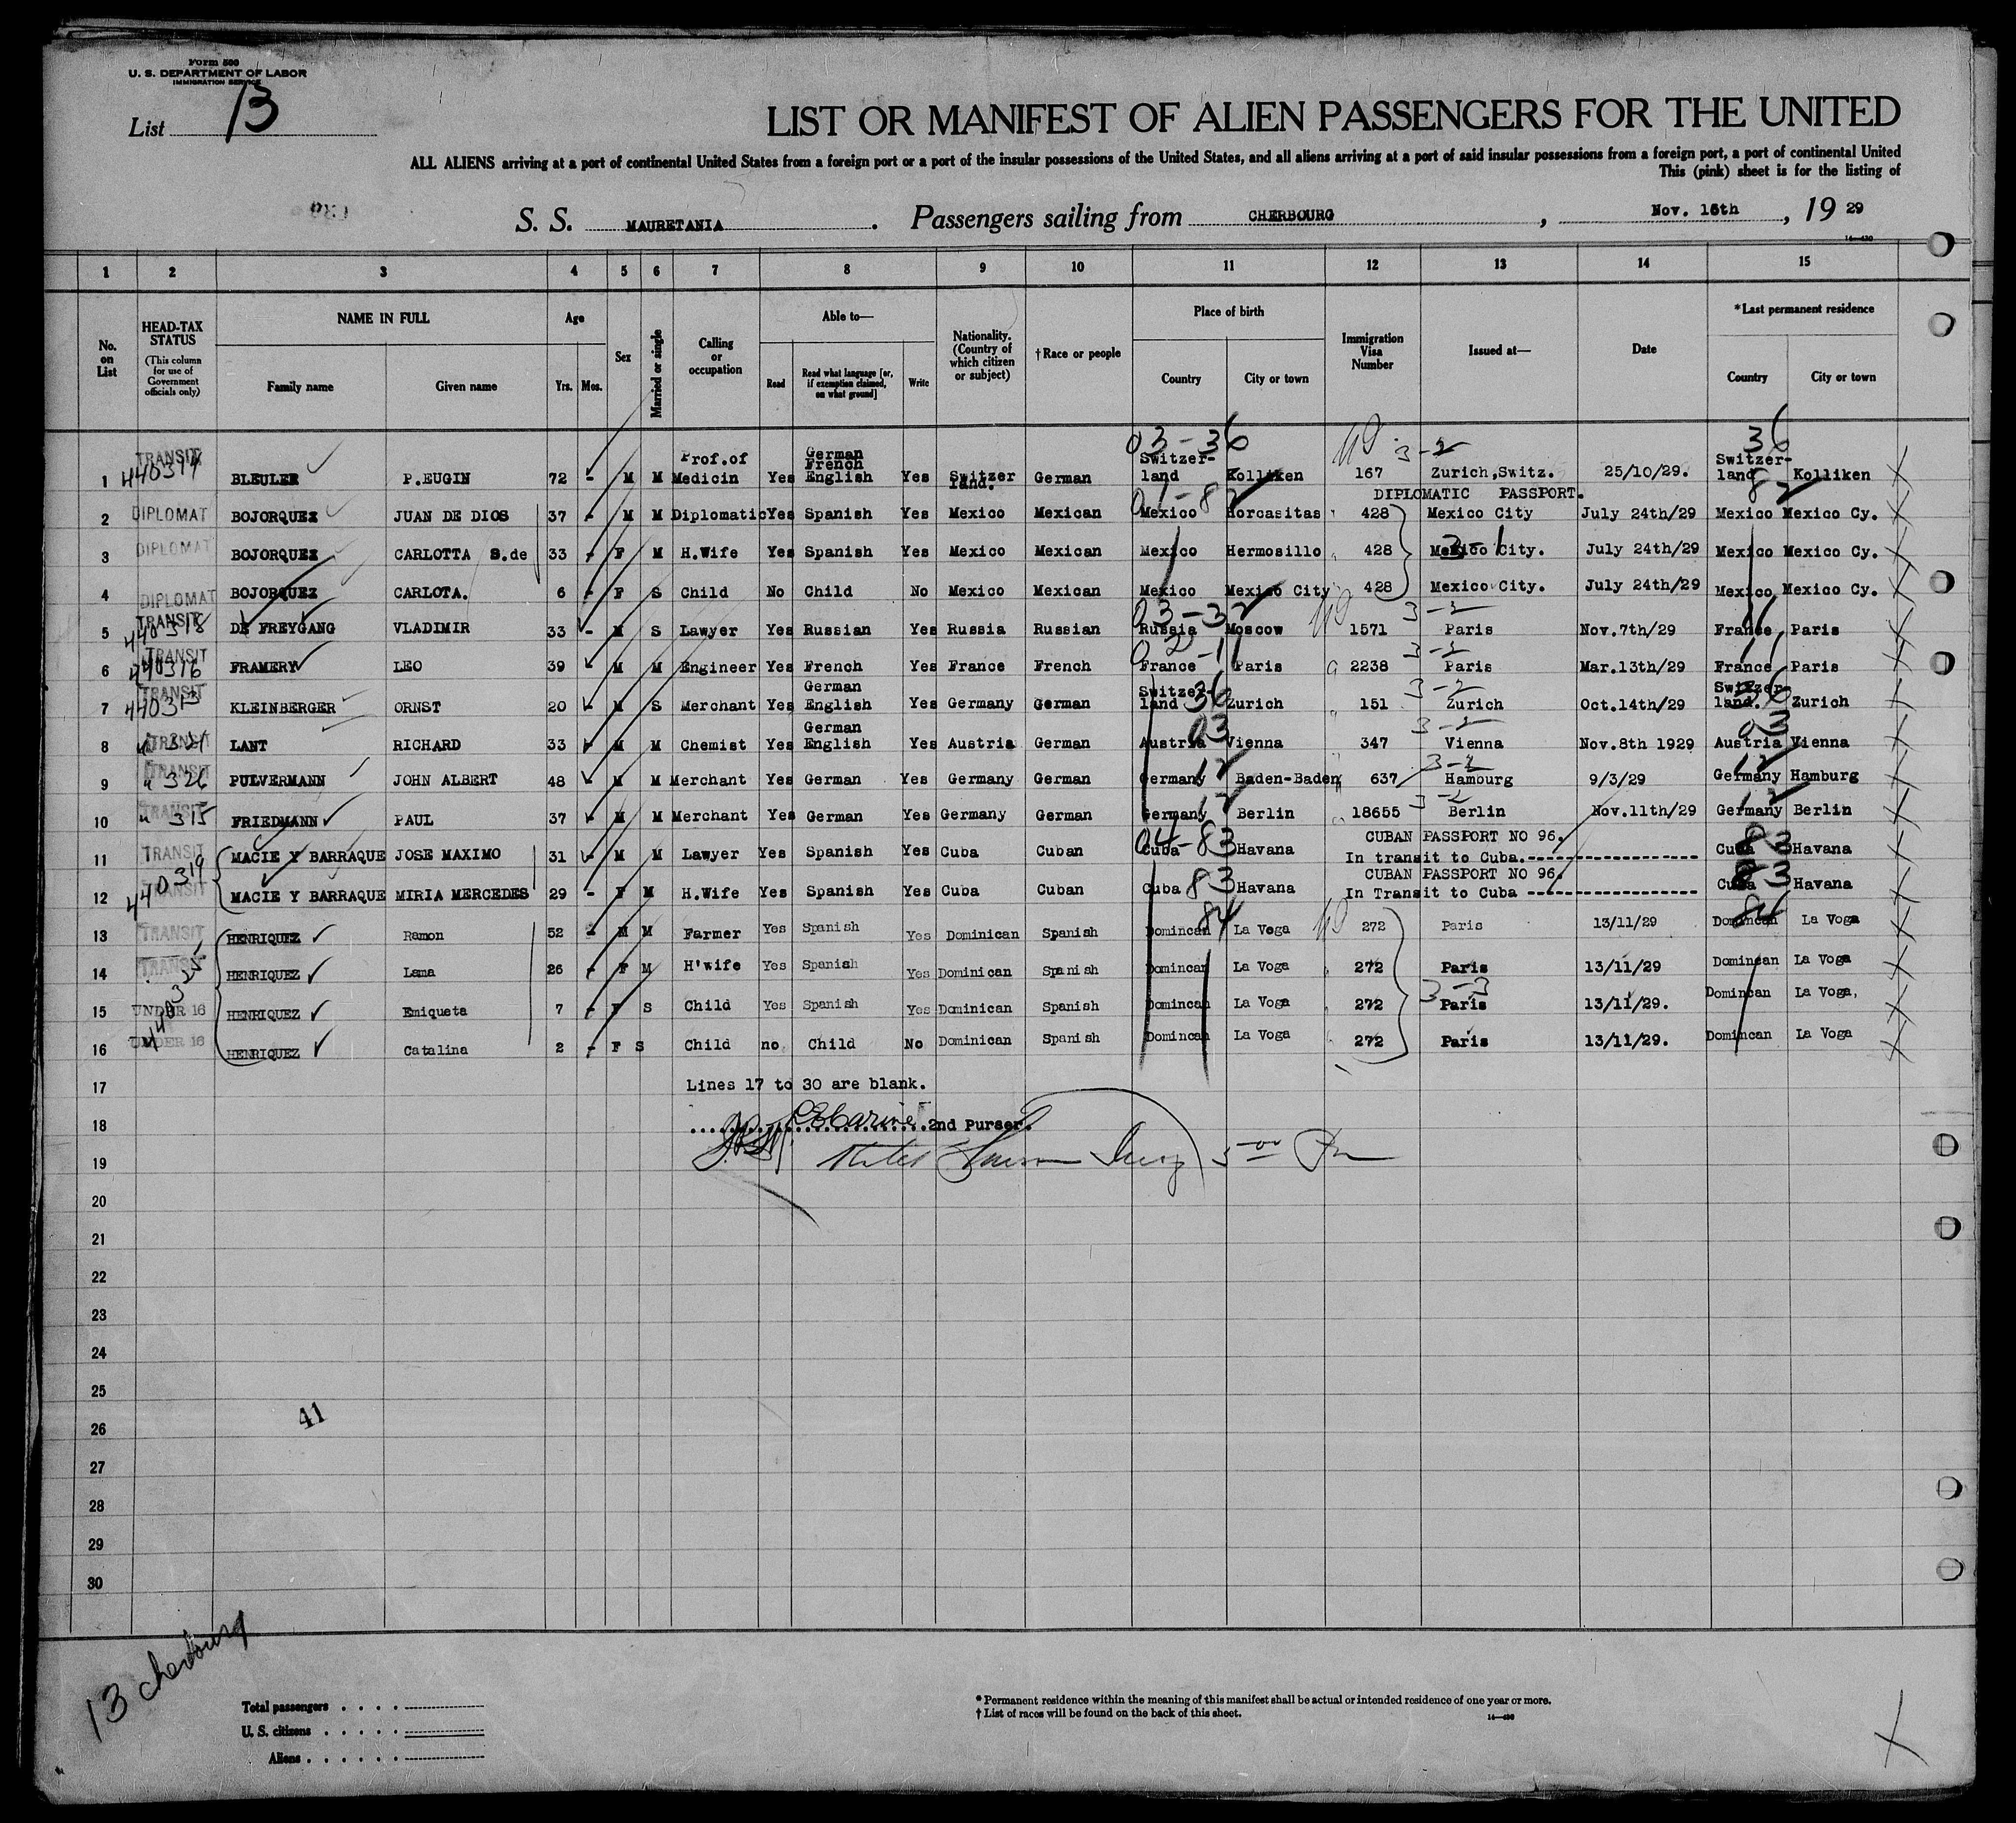 Form 500
U. S. DEPARTMENT OF LABOR
IMMIGRATION SERVICE
List 13
LIST OR MANIFEST OF ALIEN PASSENGERS FOR THE UNITED
ALL ALIENS arriving at a port of continental United States from a foreign port or a port of the insular possessions of the United States, and all aliens arriving at a port of said insular possessions from a foreign port, a port of continental United
This (pink) sheet is for the listing of
S. S. MAURETANIA. Passengers sailing from CHERBOURG, Nov. 16th, 19 29
1 2 3 4 5 6 7 8 9 10 11 12 13 14 15
No. on List
HEAD-TAX STATUS (This column for use of Government officials only)
NAME IN FULL Family name Given name
Age Yrs. Mos.
Sex
Married or single
Calling or occupation
Able to— Read Read what language [or, if exemption claimed, on what ground] Write
Nationality. (Country of which citizen or subject)
†Race or people
Place of birth Country City or town
Immigration Visa Number
Issued at—
Date
*Last permanent residence Country City or town
03-36 3-2 36
1 TRANSIT 440314 BLEULER P.EUGIN 72 - M M Prof.of Medicin Yes German French English Yes Switzer land. German Switzer-land Kolliken 167 Zurich,Switz. 25/10/29. Switzer-land Kolliken
DIPLOMATIC PASSPORT.
2 DIPLOMAT BOJORQUEZ JUAN DE DIOS 37 - M M Diplomatic Yes Spanish Yes Mexico Mexican Mexico Horcasitas 428 Mexico City July 24th/29 Mexico Mexico Cy.
3 DIPLOMAT BOJORQUEZ CARLOTTA S.de 33 - F M H.Wife Yes Spanish Yes Mexico Mexican Mexico Hermosillo 428 Mexico City. July 24th/29 Mexico Mexico Cy.
4 DIPLOMAT BOJORQUEZ CARLOTA. 6 - F S Child No Child No Mexico Mexican Mexico Mexico City 428 Mexico City. July 24th/29 Mexico Mexico Cy.
5 TRANSIT 440318 DE FREYGANG VLADIMIR 33 - M S Lawyer Yes Russian Yes Russia Russian Russia Moscow 1571 Paris Nov.7th/29 France Paris
6 TRANSIT 440316 FRAMERY LEO 39 M M Engineer Yes French Yes France French France Paris 2238 Paris Mar.13th/29 France Paris
7 TRANSIT 440313 KLEINBERGER ORNST 20 M S Merchant Yes German English Yes Germany German Switzer-land Zurich 151 Zurich Oct.14th/29 Switzer-land. Zurich
8 TRANSIT LANT RICHARD 33 - M M Chemist Yes German English Yes Austria German Austria Vienna 347 Vienna Nov.8th 1929 Austria Vienna
9 TRANSIT " 326 PULVERMANN JOHN ALBERT 48 M M Merchant Yes German Yes Germany German Germany Baden-Baden 637 Hamburg 9/3/29 Germany Hamburg
10 TRANSIT " 315 FRIEDMANN PAUL 37 - M M Merchant Yes German Yes Germany German Germany Berlin 18655 Berlin Nov.11th/29 Germany Berlin
CUBAN PASSPORT NO 96.
11 TRANSIT MACIE Y BARRAQUE JOSE MAXIMO 31 - M M Lawyer Yes Spanish Yes Cuba Cuban Cuba Havana In transit to Cuba. Cuba Havana
CUBAN PASSPORT NO 96.
12 TRANSIT 440319 MACIE Y BARRAQUE MIRIA MERCEDES 29 - F M H.Wife Yes Spanish Yes Cuba Cuban Cuba Havana In Transit to Cuba Cuba Havana
13 TRANSIT HENRIQUEZ Ramon 52 - M M Farmer Yes Spanish Yes Dominican Spanish Domincan La Vega 272 Paris 13/11/29 Domincan La Voga
14 TRANSIT HENRIQUEZ Lama 26 - F M H'wife Yes Spanish Yes Dominican Spanish Domincan La Voga 272 Paris 13/11/29 Domincan La Voga
15 UNDER 16 HENRIQUEZ Emiqueta 7 - F S Child Yes Spanish Yes Dominican Spanish Domincan La Voga 272 Paris 13/11/29. Domincan La Voga,
16 UNDER 16 440325 HENRIQUEZ Catalina 2 - F S Child no Child No Dominican Spanish Domincan La Voga 272 Paris 13/11/29. Domincan La Voga
17 Lines 17 to 30 are blank.
18 2nd Purser.
19 5 00 Pm
20
21
22
23
24
25
26 41
27
28
29
30
13 Cherbourg
Total passengers
U. S. citizens
Aliens
* Permanent residence within the meaning of this manifest shall be actual or intended residence of one year or more.
† List of races will be found on the back of this sheet.
14—430